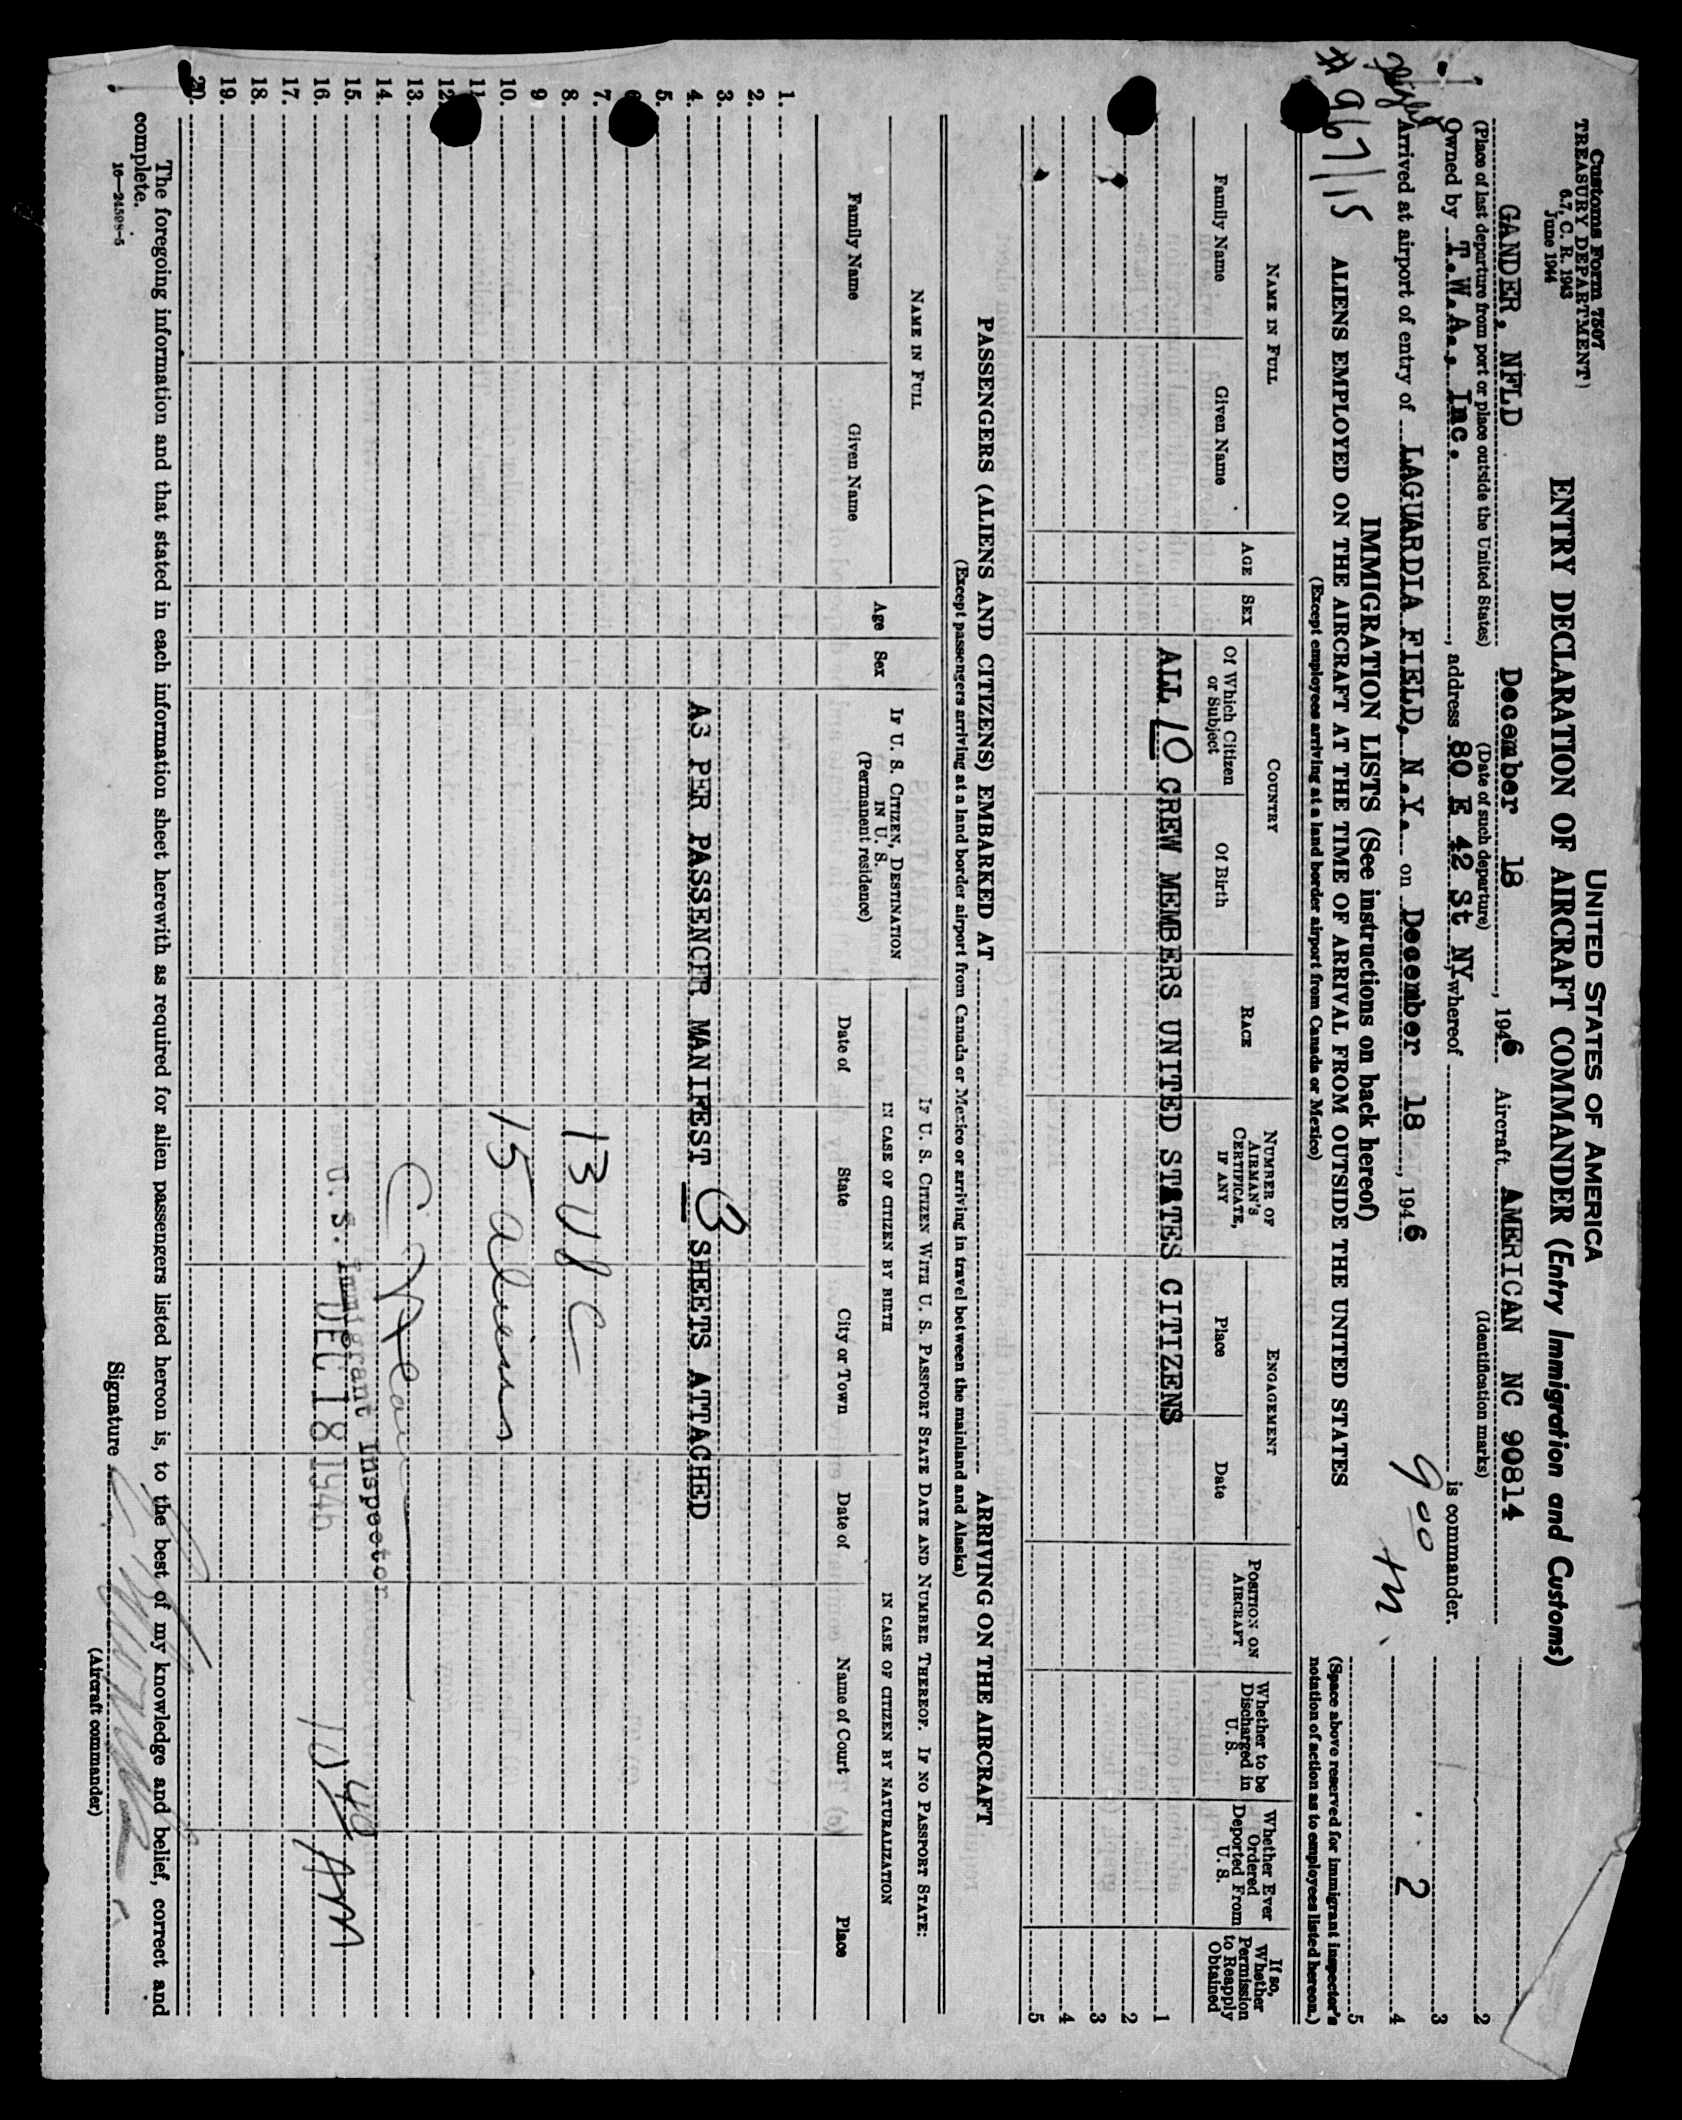 Customs Form 7507
TREASURY DEPARTMENT
6.7, C. R. 1943
June 1944
UNITED STATES OF AMERICA
ENTRY DECLARATION OF AIRCRAFT COMMANDER (Entry Immigration and Customs)
GANDER, NFLD December 18, 1946 Aircraft AMERICAN NC 90814
(Place of last departure from port or place outside the United States) (Date of such departure) (Identification marks)
Owned by T.W.A., Inc., address 80 E 42 St NY, whereof is commander.
Arrived at airport of entry of LAGUARDIA FIELD, N.Y. on December 18, 1946
900
2
2
3
4
5
IMMIGRATION LISTS (See instructions on back hereof)
# 967/15 ALIENS EMPLOYED ON THE AIRCRAFT AT THE TIME OF ARRIVAL FROM OUTSIDE THE UNITED STATES
(Except employees arriving at a land border airport from Canada or Mexico)
(Space above reserved for immigrant inspector's notation of action as to employees listed hereon.)
NAME IN FULL
Family Name
Given Name
AGE
SEX
COUNTRY
Of Which Citizen or Subject
Of Birth
RACE
NUMBER OF AIRMAN'S CERTIFICATE, IF ANY
ENGAGEMENT
Place
Date
POSITION ON AIRCRAFT
Whether to be Discharged in U. S.
Whether Ever Ordered Deported From U. S.
If so, Whether Permission to Reapply Obtained
ALL 10 CREW MEMBERS UNITED STATES CITIZENS
1
2
3
4
5
PASSENGERS (ALIENS AND CITIZENS) EMBARKED AT ARRIVING ON THE AIRCRAFT
(Except passengers arriving at a land border airport from Canada or Mexico or arriving in travel between the mainland and Alaska)
NAME IN FULL
Family Name
Given Name
Age
Sex
IF U. S. CITIZEN, DESTINATION IN U. S.
(Permanent residence)
IF U. S. CITIZEN WITH U. S. PASSPORT STATE DATE AND NUMBER THEREOF. IF NO PASSPORT STATE:
IN CASE OF CITIZEN BY BIRTH
IN CASE OF CITIZEN BY NATURALIZATION
Date of
State
City or Town
Date of
Name of Court
Place
1.
2.
3.
4. AS PER PASSENGER MANIFEST 3 SHEETS ATTACHED
5.
7.
8. 13 USC
9
10. 15 aliens
11
12.
13.
14. U. S. Immigrant Inspector
15.
16. DEC 18 1946 AM
17.
18.
19.
20.
The foregoing information and that stated in each information sheet herewith as required for alien passengers listed hereon is, to the best of my knowledge and belief, correct and
complete.
16—24598-5
Signature
(Aircraft commander)